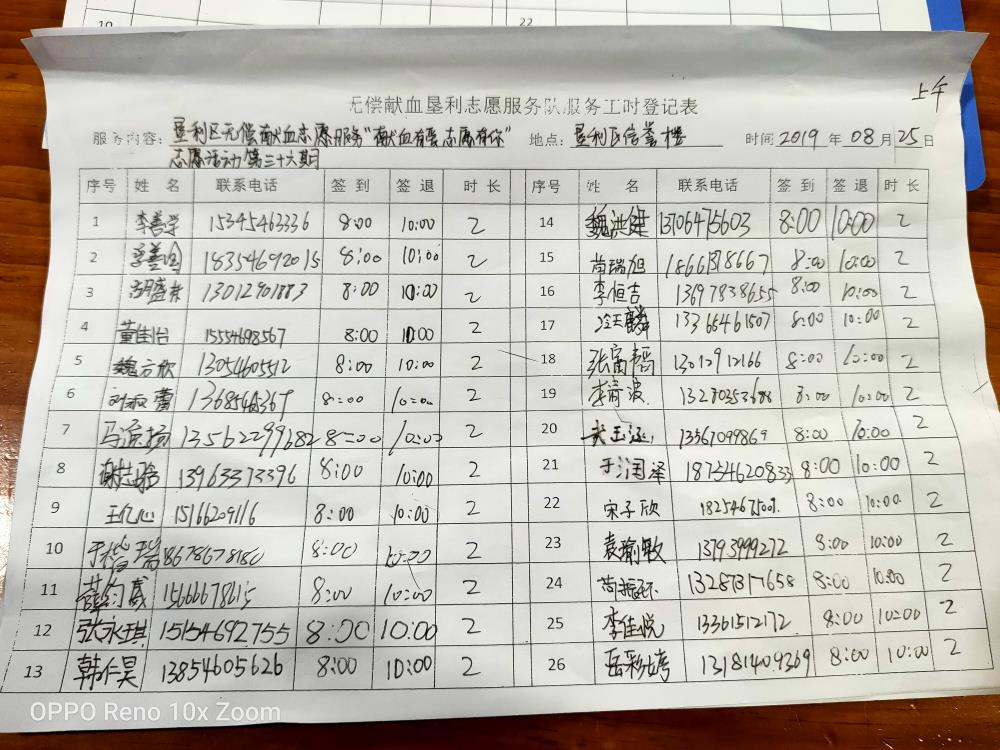 22
上午
无偿献血垦利志愿服务队服务工时登记表
服务内容: 垦利区无偿献血志愿服务"献血有要 志愿有你" 地点: 垦利区信誉楼 时间 2019 年 08 月 25 日
志愿活动第三十六期
序号 姓 名 联系电话 签 到 签 退 时 长 序号 姓 名 联系电话 签 到 签 退 时 长
1 李善学 15345463336 8:00 10:00 2 14 魏洪健 13706475603 8:00 10:00 2
2 李善国 18354692015 8:00 10:00 2 15 尚瑞旭 8:00 10:00 2
3 13012901883 8:00 10:00 2 16 李恒吉 13697838655 8:00 10:00 2
4 董佳怡 15554698567 8:00 10:00 2 17 8:00 10:00 2
5 魏方欣 13054605512 8:00 10:00 2 18 13012912166 8:00 10:00 2
6 8:00 10:00 2 19 8:00 10:00 2
7 13562299682 8:00 10:00 2 20 13561099869 8:00 10:00 2
8 13963373396 8:00 10:00 2 21 于润泽 18754620833 8:00 10:00 2
9 王亿心 15166209116 8:00 10:00 2 22 宋子欣 8:00 10:00 2
10 18678678180 8:00 10:00 2 23 袁瑜敏 13793999272 8:00 10:00 2
11 薛钧威 15666678615 8:00 10:00 2 24 8:00 10:00 2
12 张永琪 15154692755 8:00 10:00 2 25 李佳悦 13361512172 8:00 10:00 2
13 韩仁昊 13854605626 8:00 10:00 2 26 岳彩婷 13181409369 8:00 10:00 2
OPPO Reno 10x Zoom